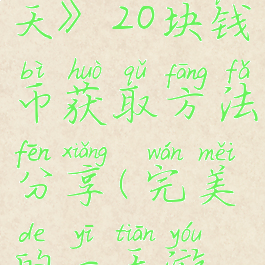 天》20块钱
bì huò qǔ fāng fǎ
币获取方法
fēn xiǎng wán měi
分享(完美
de yī tiān yóu
的一天游